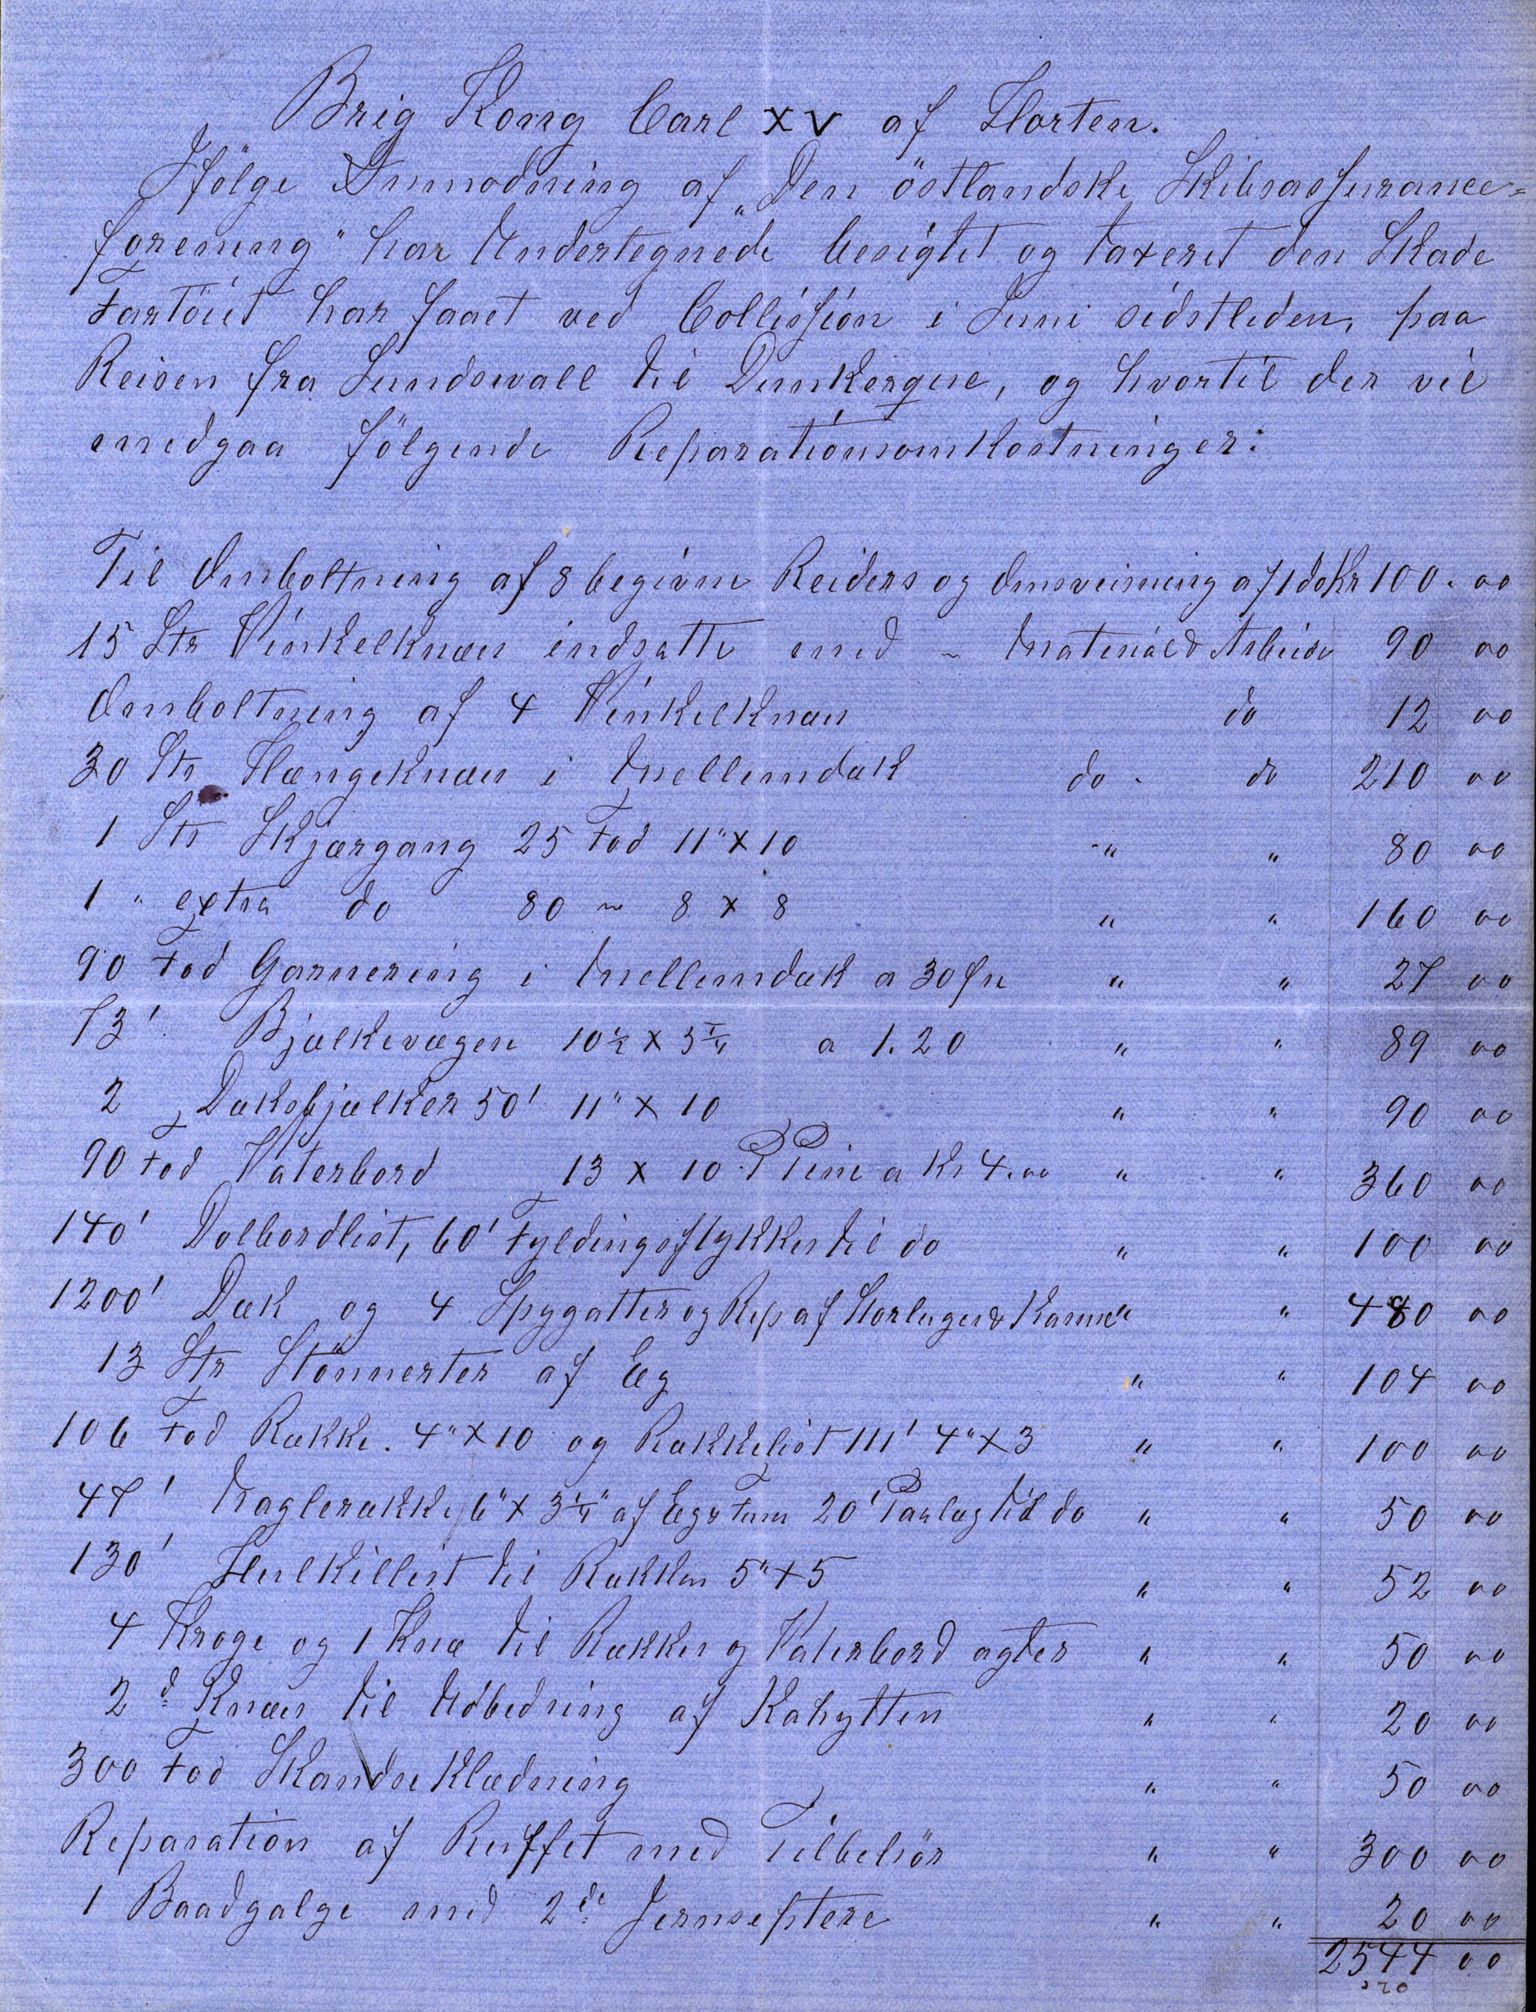 Brig Kong Carl XV af Horten.
Ifölge Anmodning af „Den östlandske Skibsassurance=
forening" har Undertegnede besigtet og taxeret den Skade
Fartöiet har faaet ved Collission i Juni sidstleden, paa
Reisen fra Sundswall til Dunkerque, og hvortil der vil
medgaa fölgende Reparationsomkostninger:
Til Omboltning af 8 begivne Reiders og Omsveisning af 1 do Kr 100. 00
15 Stk Vinkelknæer indsatte med ~ Material & Arbeide 90 00
Omboltning af 4 Vinkelknæer do 12 00
30 Stk Hængeknæer i Mellemdæk do - do 210 00
1 Stk Skjærgang 25 Fod 11" x 10 " " 80 00
1 " extra do 80 ~ 8 x 8 " " 160 00
90 Fod Garnering i Mellemdæk a 30 Øre " " 27 00
73' Bjælkevægere 10½ x 5¼ a 1.20 " " 89 00
2 Dæksbjælker 50' 11" x 10 " " 90 00
90 Fod Vaterbord 13 x 10 P Pine a Kr 4.00 " " 360 00
140' Dolbordlist, 60' Fyldingsstykker til do " " 100 00
1200' Dæk og 4 Spygatter og Rep af Storluger & Karme " " 480 00
13 Stk Stönnerter af Eg " " 104 00
106 Fod Række. 4" x 10 og Rækkelist 111' 4" x 3 " " 100 00
47' Naglerække 6" x 3¼" af Eg & Furu 20' Paalæg til do " " 50 00
130' Hulkillist til Rækken 5" x 5 " " 52 00
4 Kroge og 1 Knæ til Rækker og Vaterbord agter " " 50 00
2 d Knæer til Udbedring af Kahytten " " 20 00
300 Fod Skandseklædning " " 50 00
Reparation af Ruffet med Tilbehör " " 300 00
1 Baadgalge med 2de Jernseptere " " 20 00
2544 00